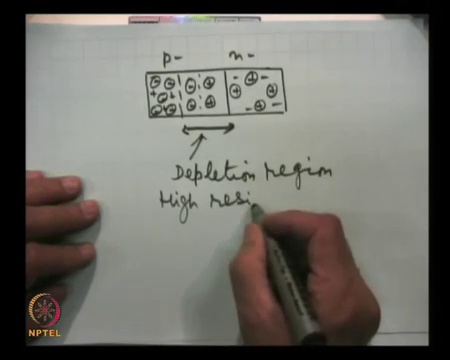 p- n-
Depletion region
High resi
NPTEL